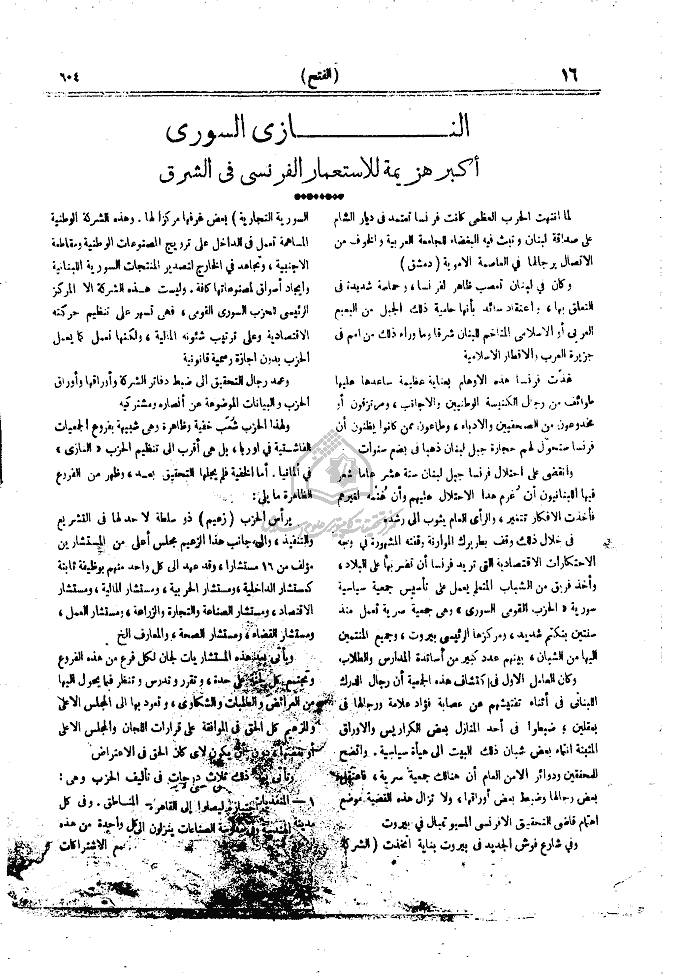 ١٦
(الفتح)
٦٠٤
النــــــازى السورى
أكبر هزيمة للاستعمار الفرنسى فى الشرق
لما انتهت الحرب العظمى كانت فرنسا تعتمد فى ديار الشام
على صداقة لبنان وتبث فيه البغضاء للجامعة العربية والخوف من
الاتصال برجالها فى العاصمة الاموية ( دمشق )
وكان فى لبنان تعصب ظاهر لفرنسا ، وحماسة شديدة فى
التعلق بها ، واعتقاد سائد بأنها حامية ذلك الجبل من البعبع
العربى أو الاسلامى المتاخم للبنان شرقا وما وراء ذلك من امم فى
جزيرة العرب والاقطار الاسلامية
غذت فرنسا هذه الاوهام بعناية عظيمة ساعدها عليها
طوائف من رجال الكنيسة الوطنيين والاجانب ، ومرتزقون أو
مخدوعون من الصحفيين والادباء ، وطامعون ممن كانوا يظنون أن
فرنسا ستحول لهم حجارة جبل لبنان ذهبا فى بضع سنوات
وانقضى على احتلال فرنسا جبل لبنان ستة عشر عاما شعر
فيها اللبنانيون أن غرم هذا الاحتلال عليهم وأن غنمه لغيرهم
فأخذت الافكار تتغير ، والرأى العام يثوب الى رشده
فى خلال ذلك وقف بطريرك الموارنة وقفته المشهورة فى وجه
الاحتكارات الاقتصادية التى تريد فرنسا أن تضربها على البلاد ،
وأخذ فريق من الشباب المتعلم يعمل على تأسيس جمعية سياسية
سرية « الحزب القومى السورى » وهى جمعية سرية تعمل منذ
سنتين بتكتم شديد ، ومركزها الرئيسى بيروت ، وجميع المنتمين
اليها من الشبان ، بينهم عدد كبير من أساتذة المدارس والطلاب
وكان العامل الاول فى اكتشاف هذه الجمعية أن رجال الدرك
اللبنانى فى أثناء تفتيشهم عن عصابة فؤاد علامة ورجالها فى
بعقلين ، ضبطوا فى أحد المنازل بعض الكراريس والاوراق
المثبتة انتماء بعض شبان ذلك البيت الى هيأة سياسية . واتضح
للمحققين ودوائر الامن العام أن هنالك جمعية سرية ، فاعتقل
بعض رجالها وضبط بعض أوراقها ، ولا تزال هذه القضية موضع
اهتمام قاضى التحقيق الافرنسى المسيو تمبال فى بيروت
وفى شارع فوش الجديد فى بيروت بناية اتخذت ( الشركة
السورية التجارية ) بعض غرفها مركزا لها . وهذه الشركة الوطنية
المساهمة تعمل فى الداخل على ترويج المصنوعات الوطنية ومقاطعة
الاجنبية ، وتجاهد فى الخارج لتصدير المنتجات السورية اللبنانية
وايجاد أسواق لمصنوعاتها كافة . وليست هذه الشركة الا المركز
الرئيسى للحزب السورى القومى ، فهى تسهر على تنظيم حركته
الاقتصادية وعلى ترتيب شئونه المالية ، ولكنها تعمل كما يعمل
الحزب بدون اجازة رسمية قانونية
وعمد رجال التحقيق الى ضبط دفاتر الشركة وأوراقها وأوراق
الحزب والبيانات الموضوعة عن أنصاره ومشتركيه
ولهذا الحزب شُعَب خفية وظاهرة وهى شبيهة بفروع الجمعيات
الفاشستية فى اوربا ، بل هى أقرب الى تنظيم الحزب « النازى »
فى ألمانيا . أما الخفية فلم يجلها التحقيق بعد ، وظهر من الفروع
الظاهرة ما يلى :
يرأس الحزب ( زعيم ) ذو سلطة لا حد لها فى التشريع
والتنفيذ ، والى جانب هذا الزعيم مجلس أعلى من المستشارين
مؤلف من ١٦ مستشارا ، وقد عهد الى كل واحد منهم بوظيفة ثابتة
كمستشار الداخلية ، ومستشار الحربية ، ومستشار المالية ، ومستشار
الاقتصاد ، ومستشار الصناعة والتجارة والزراعة ، ومستشار العمل ،
ومستشار القضاء ، ومستشار الصحة ، والمعارف الخ
ويأتى بعد هذه المستشاريات لجان لكل فرع من هذه الفروع
وتجتمع كل لجنة على حدة ، وتقرر وتدرس وتنظر فيما يحول اليها
من العرائض والطلبات والشكاوى ، وتعود بها الى المجلس الاعلى
وللزعيم كل الحق فى الموافقة على قرارات اللجان والمجلس الاعلى
أو نقضها ، دون أن يكون لاى كان الحق فى الاعتراض
وتأتى بعد ذلك ثلاث درجات فى تأليف الحزب وهى :
١ — المنفذيات المناطق . وفى كل
مدينة كل واحدة من هذه
الاشتراكات